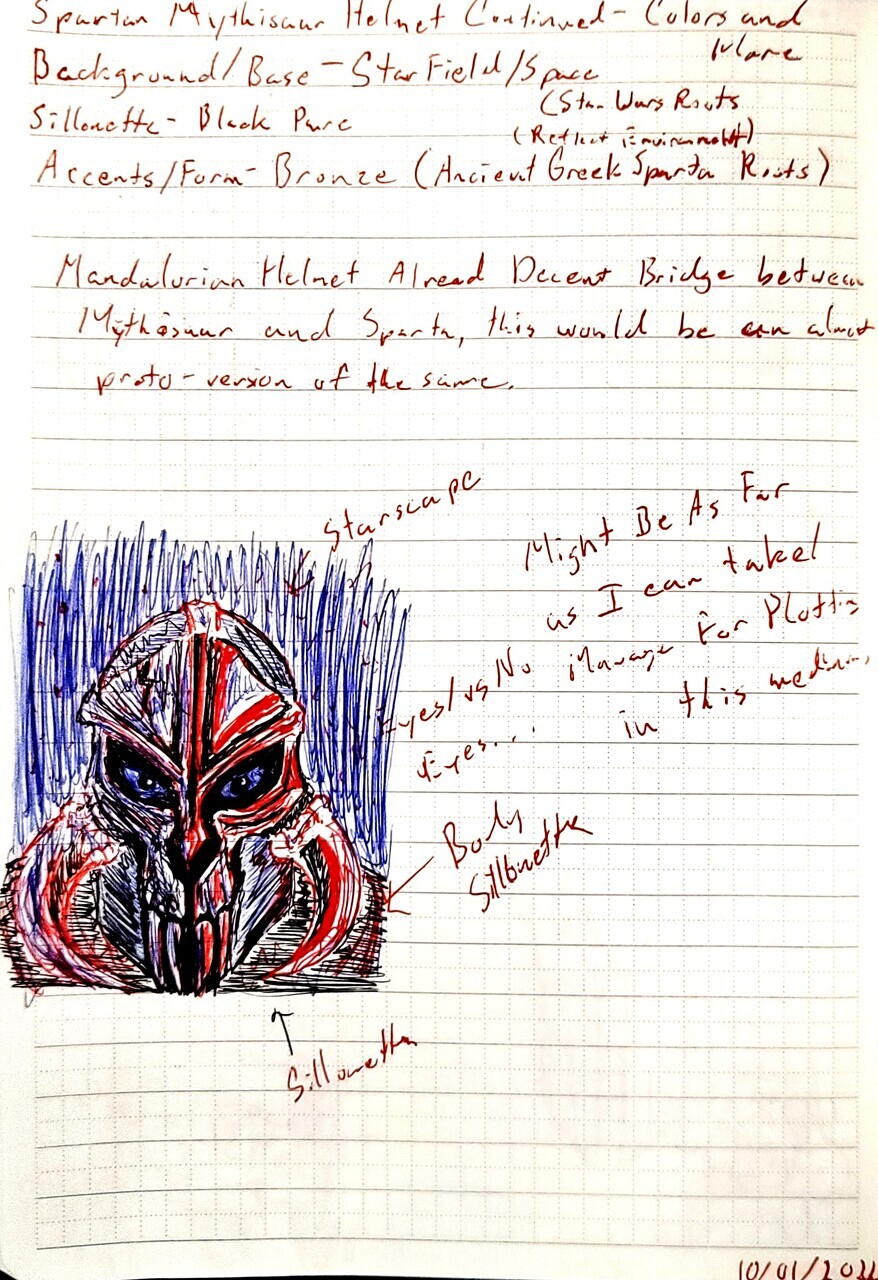 Spartan Mythisaur Helmet Continued - Colors and
More
Background/Base - Star Field/Space
(Star Wars Roots
Sillouette - Black Pure
(Reflect Environment)
Accents/Form - Bronze (Ancient Greek Sparta Roots)
Mandalorian Helmet Alread Decent Bridge between
Mythosaur and Sparta, this would be an almost
proto-version of the same.
Starscape
Might Be As Far
as I can take
Eyes/vs No Manage For Plotting
Eyes... in this medium,
Body
Sillouette
Sillouette
10/01/202